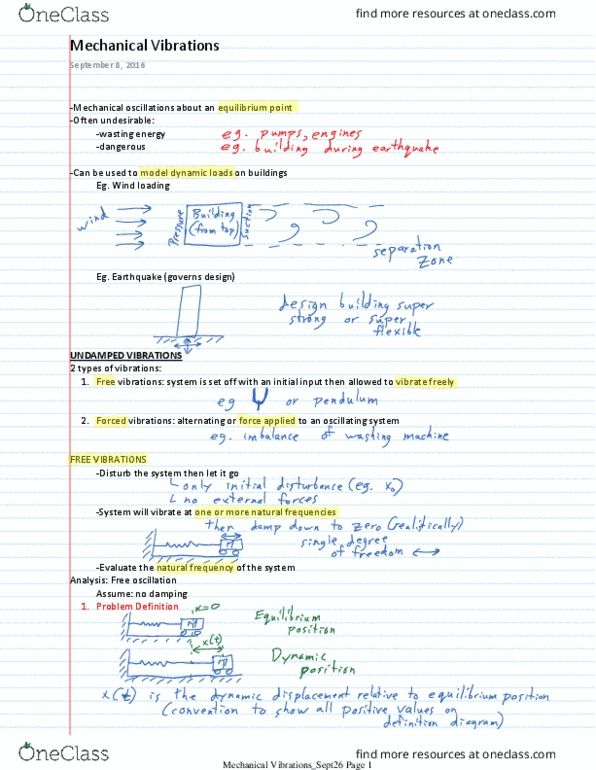 OneClass
find more resources at oneclass.com
Mechanical Vibrations
September 8, 2016
-Mechanical oscillations about an equilibrium point
-Often undesirable:
-wasting energy eg. pumps, engines
-dangerous eg. building during earthquake
-Can be used to model dynamic loads on buildings
Eg. Wind loading
wind Pressure Building (from top) Suction
separation
zone
Eg. Earthquake (governs design)
design building super
strong or super
flexible
UNDAMPED VIBRATIONS
2 types of vibrations:
1. Free vibrations: system is set off with an initial input then allowed to vibrate freely
eg or pendulum
2. Forced vibrations: alternating or force applied to an oscillating system
eg. imbalance of washing machine
FREE VIBRATIONS
-Disturb the system then let it go
only initial disturbance (eg. x₀)
no external forces
-System will vibrate at one or more natural frequencies
then damp down to zero (realistically)
M single degree
of freedom ↔
-Evaluate the natural frequency of the system
Analysis: Free oscillation
Assume: no damping
1. Problem Definition
x=0
M Equilibrium
position
x(t)
M Dynamic
position
x(t) is the dynamic displacement relative to equilibrium position
(convention to show all positive values on
definition diagram)
OneClass
find more resources at oneclass.com
Mechanical Vibrations_Sept26 Page 1